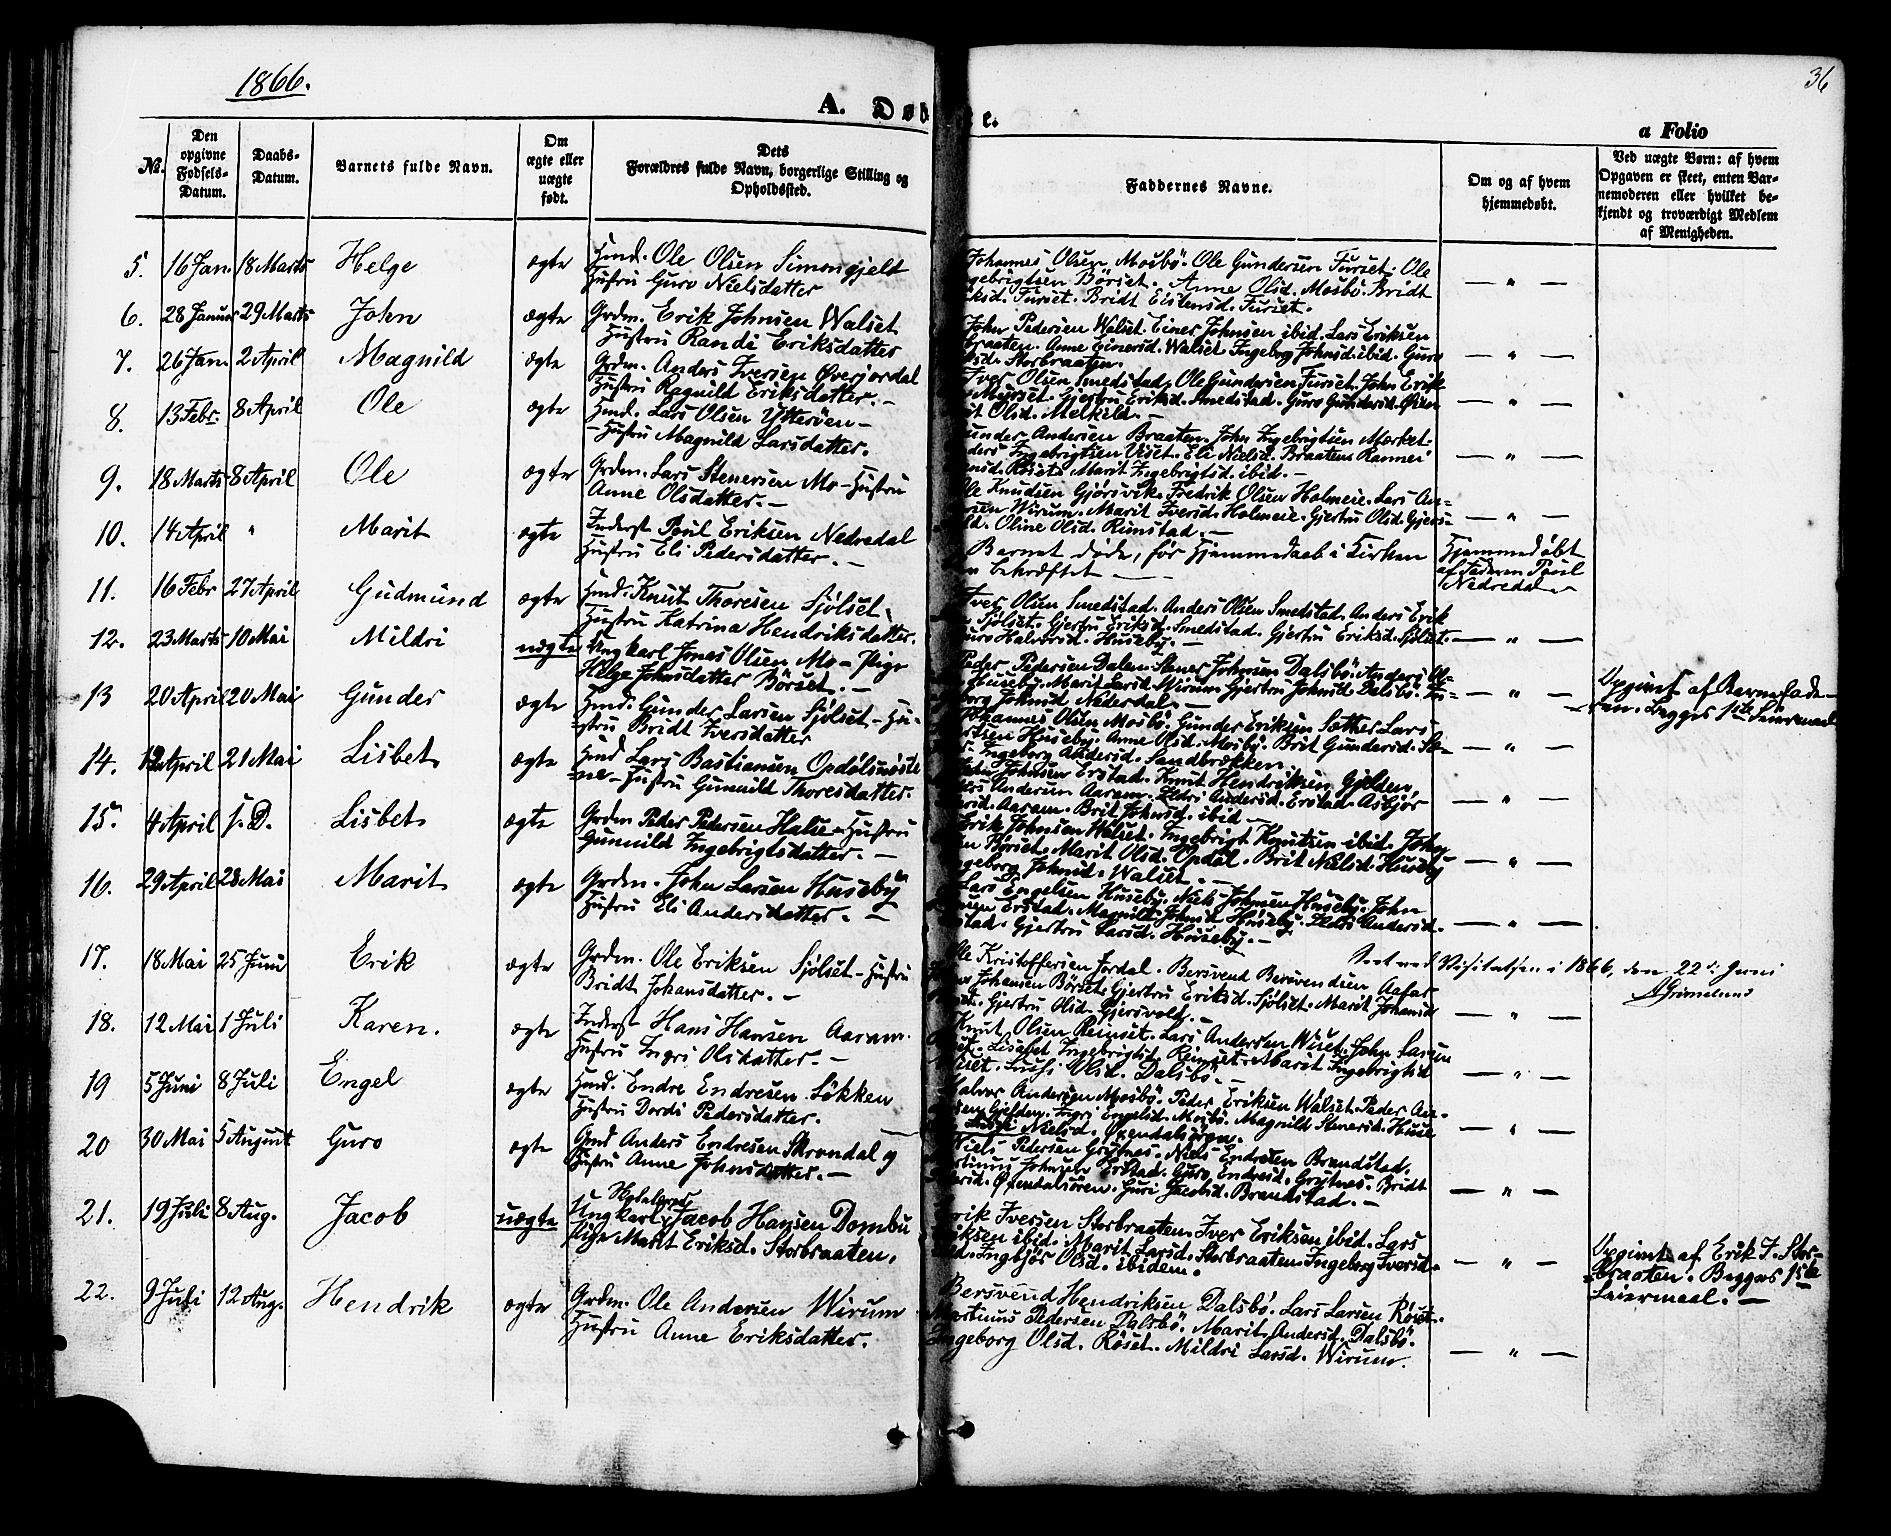 1866.
36
A. Døb
e.
a Folio
No.
Den opgivne Fødsels-Datum.
Daabs-Datum.
Barnets fulde Navn.
Om ægte eller uægte født.
Dets Forældres fulde Navn, borgerlige Stilling og Opholdssted.
Faddernes Navne.
Om og af hvem hjemmedøbt.
Ved uægte Børn: af hvem Opgaven er skeet, enten Barnemoderen eller hvilket bekjendt og troværdigt Medlem af Menigheden.
5. 16 Jan. 18 Marts Helge ægte Hmd. Ole Olsen Simongjelt
Hustru Guro Nielsdatter
Johannes Olsen Mosbö. Ole Gundersen Furset. Ole
gebrigtsen Börset. Anne Olsd. Mosbö. Bridt
Furset. Bridt Eistensd. Furset.
6. 28 Januar 29 Marts John ægte Grdm. Erik Johnsen Walset
Hustru Randi Eriksdatter
John Pedersen Walset. Einer Johnsen ibid. Lars Eriksen
Braaten. Anne Einersd. Walset. Ingeborg Johnsd. ibid. Guro
Storbraaten.
7. 26 Jan. 2 April Magnild ægte Grdm. Anders Iversen Øverjordal
Hustru Ragnild Eriksdatter. -
Iver Olsen Smedstad. Ole Gundersen Furset. John Erik
Gjertru Eriksd. Smedstad. Guro Gundersd.
Olsd. Melkild. -
8. 13 Febr. 8 April Ole ægte Hmd. Lars Olsen Ytteröen -
- Hustru Magnild Larsdatter.
under Andersen Braaten. John Ingebrigtsen Mærket.
ders Ingebrigtsen Viset. Eli Nielsd. Braaten. Rannei
Röset. Marit Ingebrigtsd. ibid. -
9. 18 Marts 8 April Ole ægte Grdm. Lars Stenersen Mo - Hustru
Anne Olsdatter. -
Ole Knudsen Gjörsvik. Fredrik Olsen Holmeie. Lars An-
Wirum. Marit Iversd. Holmeie. Gjertru Olsd. Gjers-
Oline Olsd. Rimstad. -
10. 14 April " Marit ægte Inderst Poul Eriksen Nedredal
Hustru Eli Pedersdatter. -
Barnet döde, för Hjemmedaab i Kirken
bekræftet -
Hjemmedöbt
af Faderen Poul
Nedredal -
11. 16 Febr 27 April Gudmund ægte Hmd. Knut Thoresen Sjölset.
Hustru Katrina Hendriksdatter.
Iver Olsen Smedstad. Anders Olsen Smedstad. Anders Erik
Sjölset. Gjertru Eriksd. Smedstad. Gjertru Eriksd. Sjölset.
Guro Halvorsd. Huseby. -
12. 23 Marts 10 Mai Mildri uægte Ungkarl Jonas Olsen Mo - Pige
Helge Johnsdatter Börset. -
Peder Pedersen Dalem. Stener Johnsen Dalsbö. Anders Ol-
Huseby. Marit Larsd. Wirum. Gjertru Johnsd. Dalsbö. In-
borg Johnsd. Nederdal. -
Opgivet af Barnefade-
ren. Begges 1ste Leiermaal
13 20 April 20 Mai Gunder ægte Hmd. Gunder Larsen Sjölset - Hu-
stru Bridt Iversdatter
Johannes Olsen Mosbö. Gunder Eriksen Sæther. Lars
Huseby. Anne Olsd. Mosbö. Brit Gundersd. Sæ-
Ingeborg Andersd. Sandbrækken.
14. 12 April 21 Mai Lisbet ægte Hmd Lars Bastiansen Opdölsmoste
ne - Hustru Gunnild Thoresdatter.
Johnsen Erstad. Knut Hendriksen Gjelden,
Andersen Aaram. Ildri Andersd. Erstad. Asbjör
Aaram. Brit Johnsd. ibid -
15. 4 April s. D. Lisbet ægte Grdm Peder Pedersen Halse - Hustru
Gunnild Ingebrigtsdatter. -
Erik Johnsen Walset. Ingebrigt Knutsen ibid. John
Börset. Marit Olsd. Opdal. Brit Nielsd. Huseby
Ingeborg Johnsd. Walset. -
16. 29 April 28 Mai Marit ægte Grdm. John Larsen Huseby
Hustru Eli Andersdatter. -
Lars Engelsen Huseby. Niels Johnsen Huseby. John
Erstad. Magnild Johnsd. Huseby. Ildri Andersd.
stad. Gjertru Larsd. Huseby. -
Seet ved Visitatsen i 1866, den 22de Juni
A Grimelund
17. 18 Mai 25 Juni Erik ægte Grdm. Ole Eriksen Sjölset - Hustru
Bridt Johansdatter. -
Ole Kristoffersen Jordal. Bersvend Bersvendsen Aafar-
Johansen Börset. Gjertru Eriksd. Sjölset. Marit Johansd
Gjertru Olsd. Gjersvold. -
18. 12 Mai 1 Juli Karen. ægte Inderst Hans Hansen Aaram.
Hustru Ingri Olsdatter. -
Knut Olsen Reinset. Lars Andersen Wiset. John Larsen
Lisabet Ingebrigtsd. Reinset. Marit Ingebrigtsd
Olsd. Dalsbö. -
19 5 Juni 8 Juli Engel ægte Hmd. Endre Endresen Lökken
Hustru Dordi Pedersdatter.
Halvor Andersen Mosbö. Peder Eriksen Walset. Peder An-
Gjelden. Ingri Engelsd. Mosbö. Magnild Stenersd. Huse
Nielsd. Öxendalsören.
20 30 Mai 5 August Guro ægte Gmd Anders Endresen Skrondal og
Hustru Anne Johnsdatter. -
Niels Pedersen Grytnes. Niels Endresen Brandstad.
Johnsen Erstad. Guro Endresd. Grytnes. Bridt
Öxendalsören. Guri Jacobsd. Brandstad. -
21. 19 Juli 8 Aug. Jacob uægte Ungkarl, Jacob Hansen Dombu
Pige Marit Eriksd. Storbraaten.
Erik Iversen Storbraaten. Iver Eriksen ibid. Lars
Eriksen ibid. Marit Larsd. Storbraaten. Ingeborg Iversd.
Ingbjör Olsd. ibidem.
Opgivet af Erik I. Stor-
braaten. Begges 1ste
Leiermaal. -
22. 9 Juli 12 Aug. Hendrik ægte Grdm. Ole Andersen Wirum -
Hustru Anne Eriksdatter.
Bersvend Hendriksen Dalsbö. Lars Larsen Röset.
Martinus Pedersen Dalsbö. Marit Andersd. Dalsbö.
Ingeborg Olsd. Röset. Mildri Larsd. Wirum.